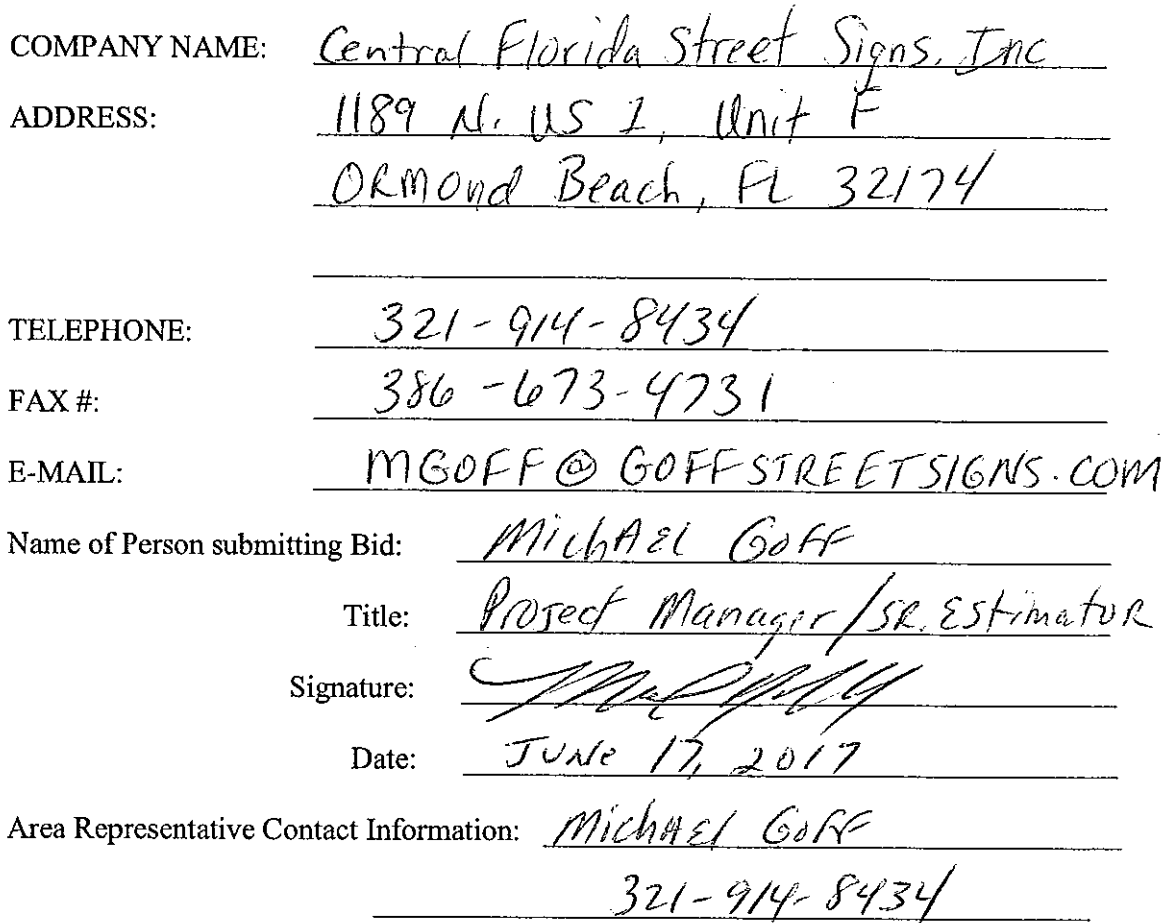 COMPANY NAME: Central Florida Street Signs, Inc
ADDRESS: 1189 N. US 1, Unit F
ORMOnd Beach, FL 32174
TELEPHONE: 321-914-8434
FAX #: 386-673-4731
E-MAIL: MGOFF@GOFFSTREETSIGNS.COM
Name of Person submitting Bid: MichAEl GoFF
Title: PRoject Manager/SR. EStimatoR
Signature:
Date: JUNe 17, 2017
Area Representative Contact Information: MichAEl GoFF
321-914-8434